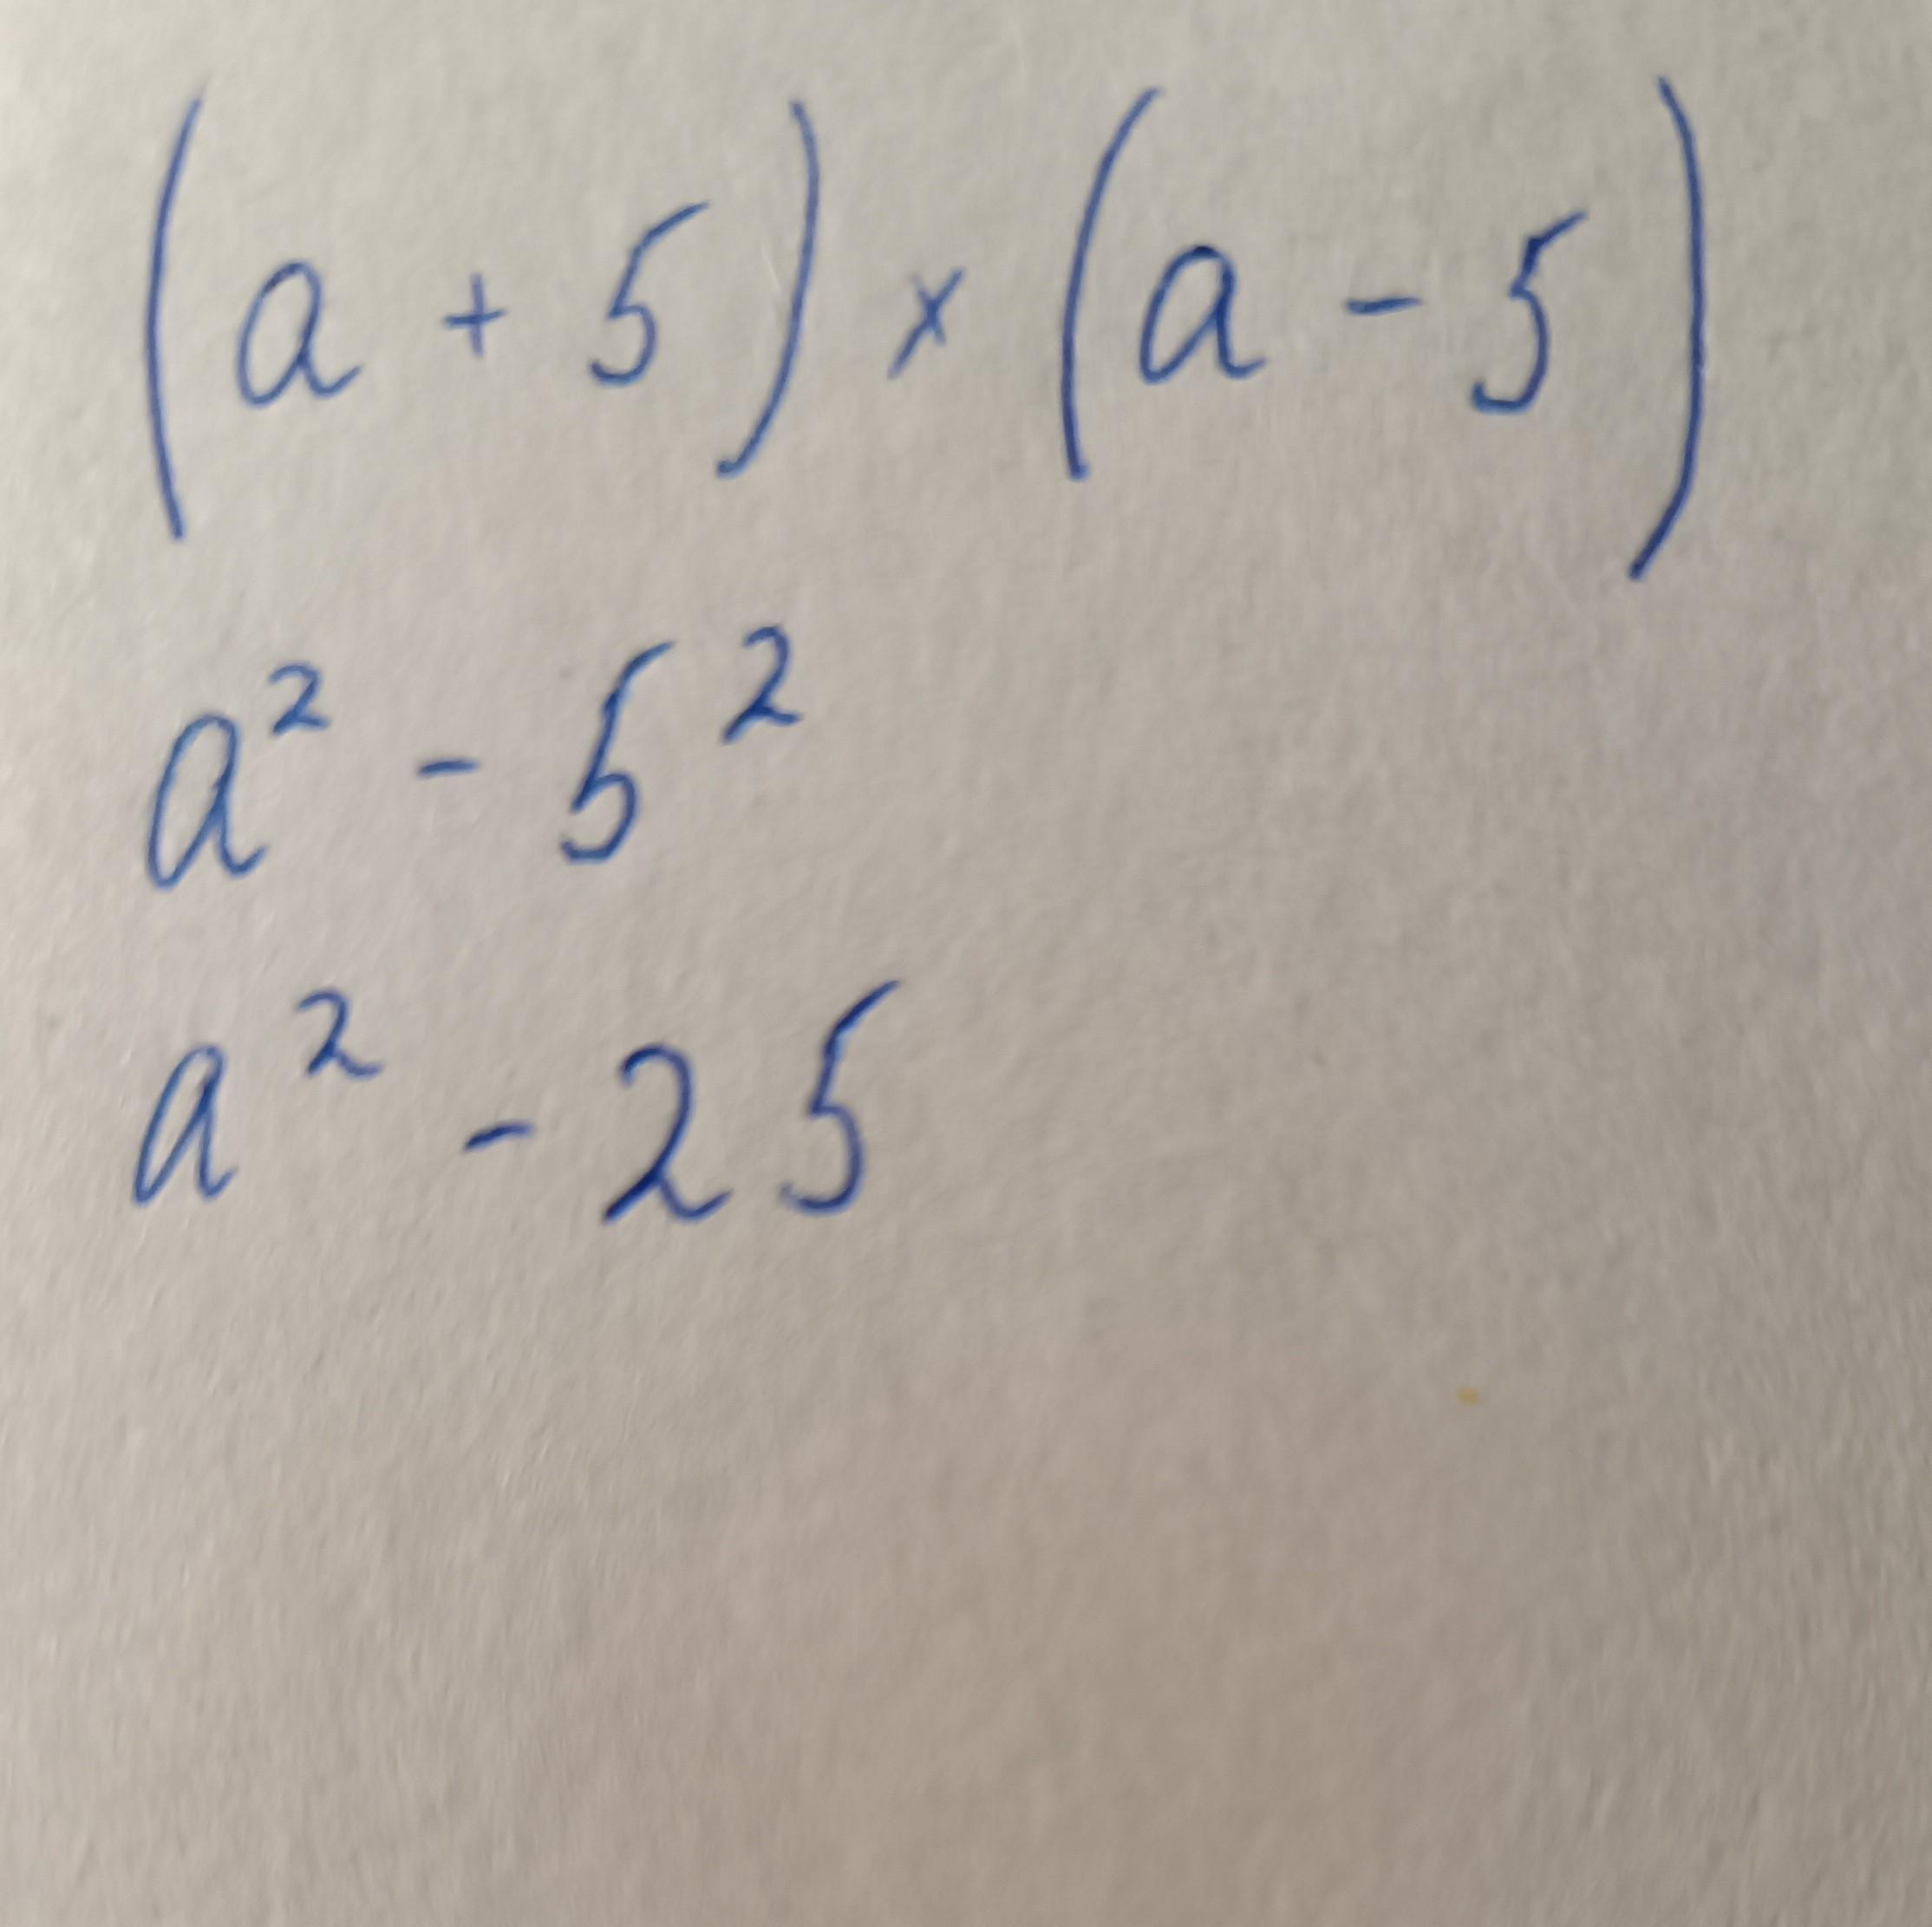 (a + 5) × (a - 5)
a² - 5²
a² - 25